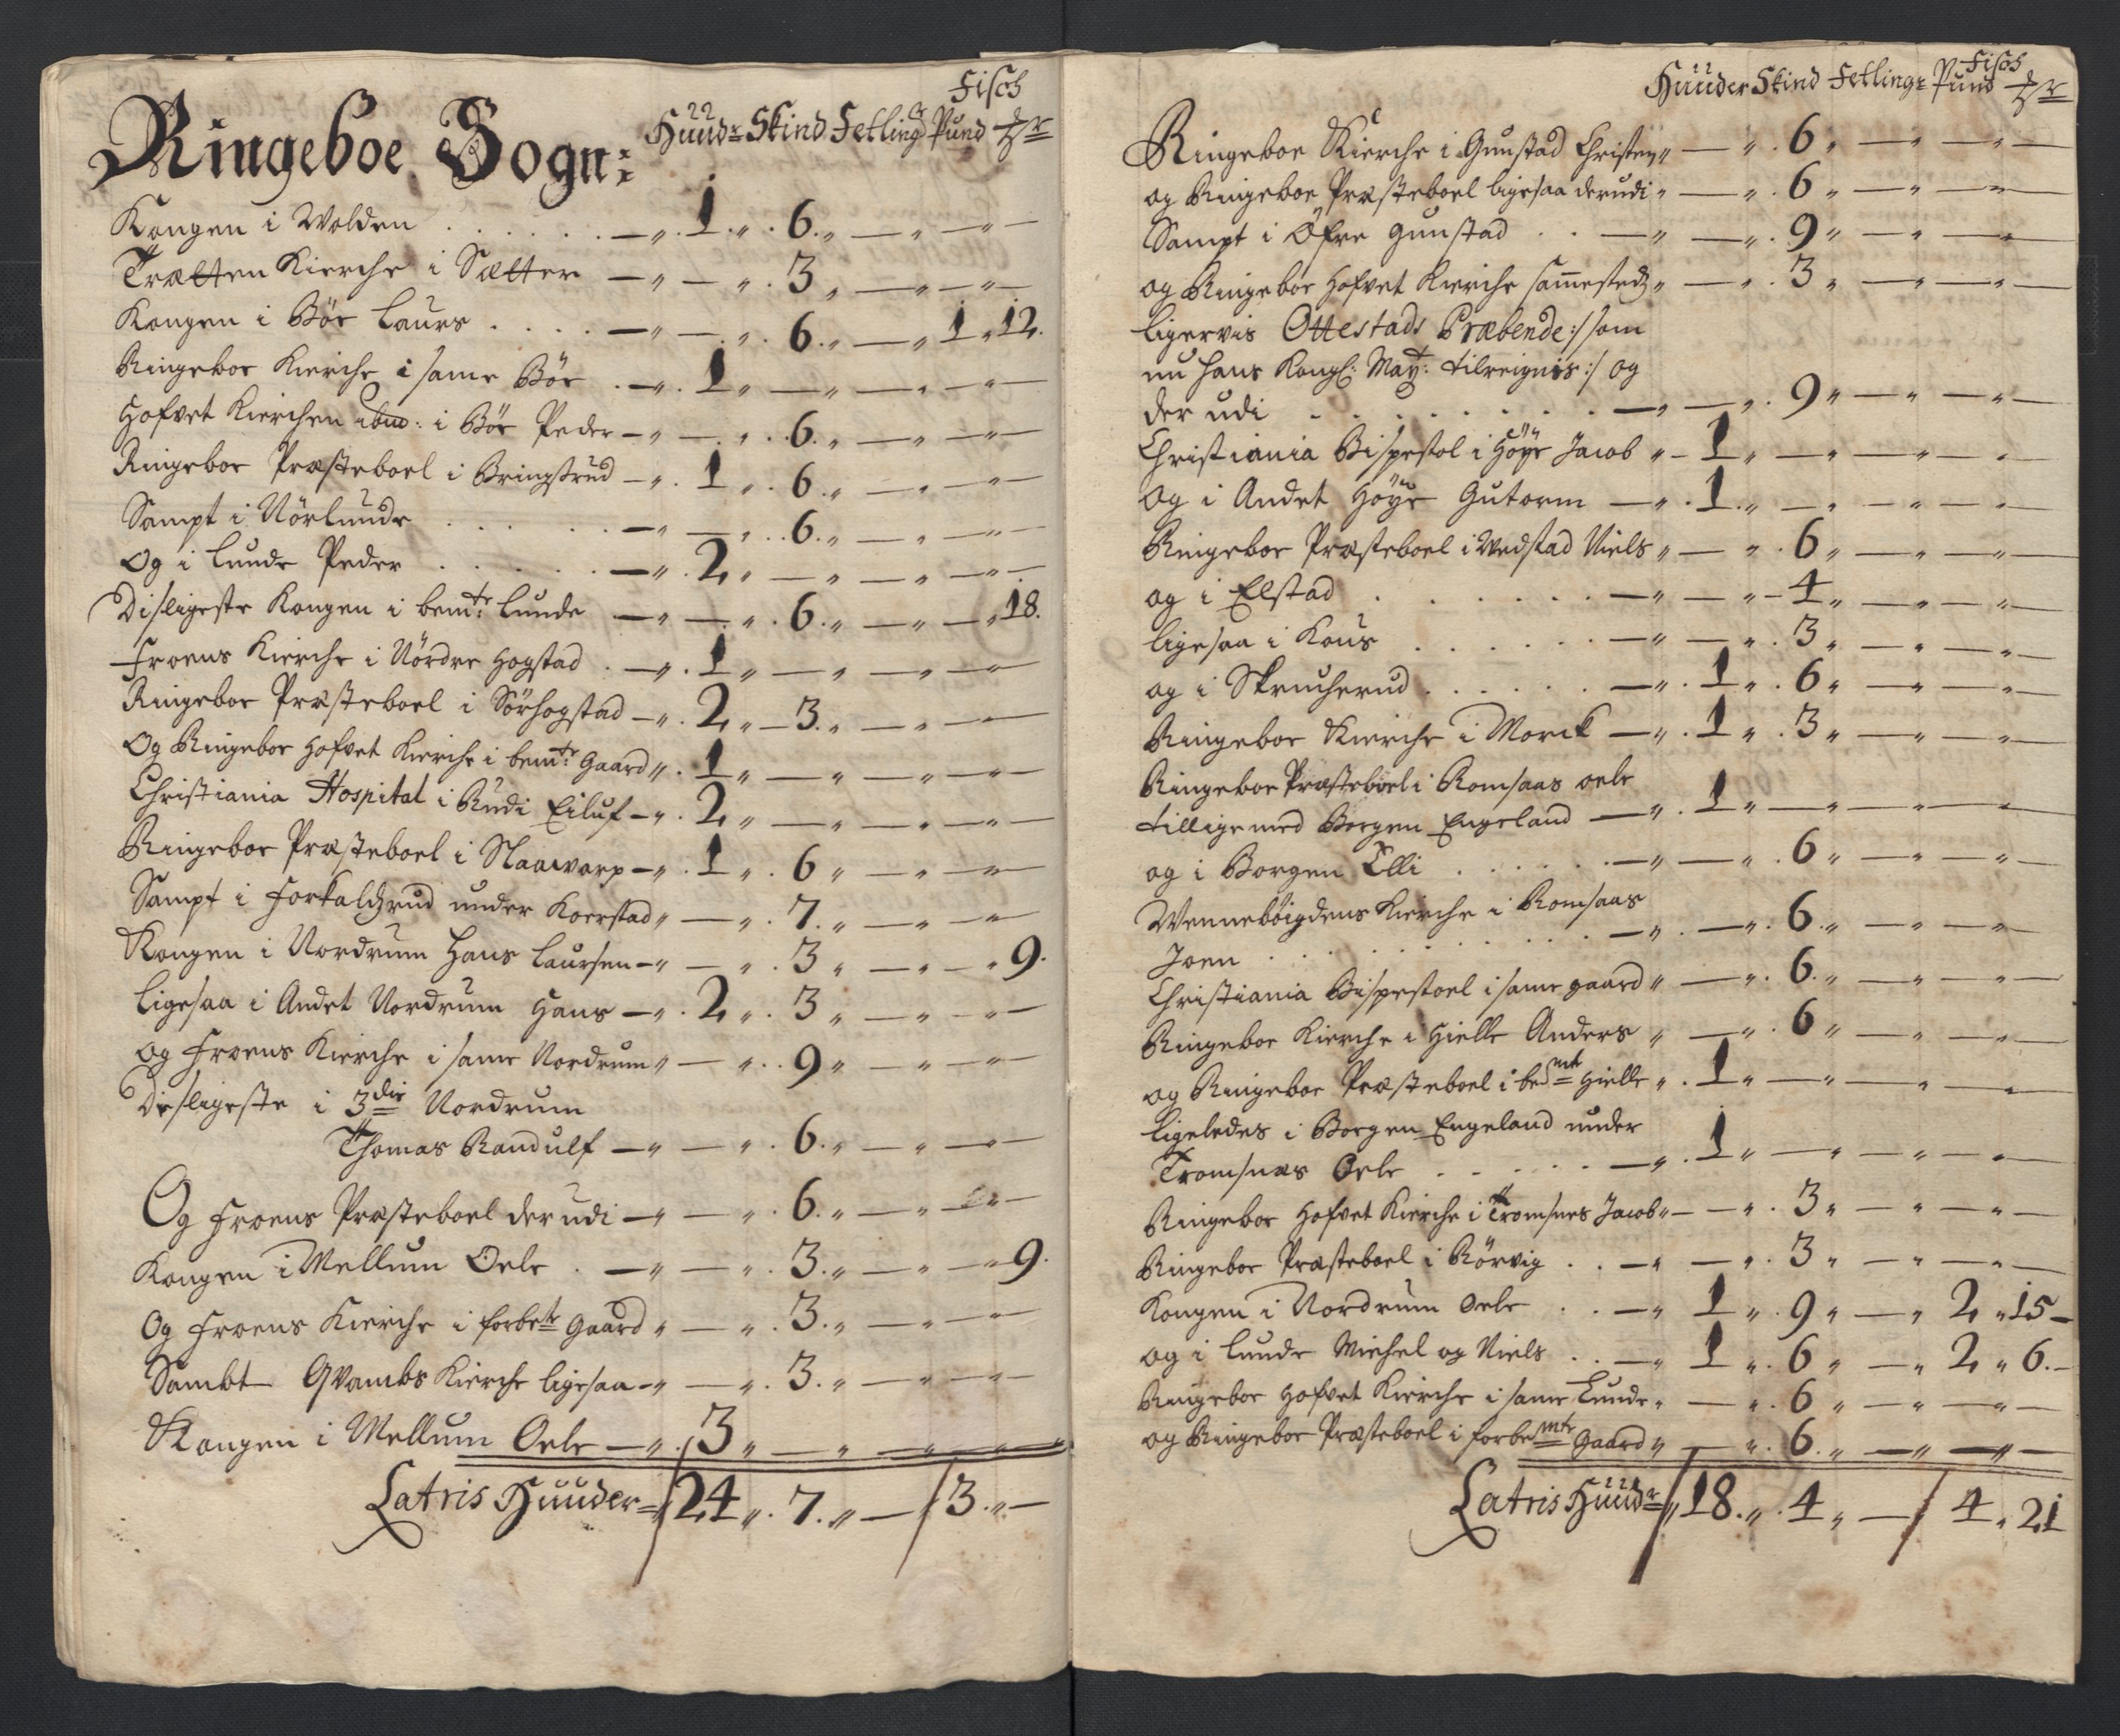 Fisch
Ringeboe Sogn: Huudr Skind Fetling Pund
Kongen i Wolden . . . . . . — " . 1 . " . 6 . " — " — " —
Trætten Kierche i Sætter — " — " . 3 " — " — " —
Kongen i Böe Laurs . . . . — " — " . 6 . " — " 1 " 12.
Ringeboe Kierche i same Böe . — " . 1 " — " — " — " —
Hofvet Kierchen ibm: i Böe Peder — " — " . . 6 . " — " — " —
Ringeboe Præsteboel i Bringsrud — " . 1 " . 6 . " — " — " —
Sampt i Nörlunde . . . . . — " — " . . 6 . " — " — " —
Og i Lunde Peder . . . . . — " . 2 " — " — " — " —
Disligeste Kongen i bemte: Lunde — " — " . 6 . " — " — " 18.
Froens Kierche i Nördre Hogstad . — " . 1 " — " — " — " —
Ringeboe Præsteboel i Sörhogstad — " . 2 " — 3 . " — " — " —
Og Ringeboe Hofvet Kierche i bemte: Gaard " . 1 " — " — " — " —
Christiania Hospital i Rudi Eiluf — " . 2 " — " — " — " —
Ringeboe Præsteboel i Slaawarp — " . 1 " . 6 " — " — " —
Sampt i Forkalsrud under Koerstad " — " . 7 . " — " — " —
Kongen i Nordrum Hans Laursen — " — " . 3 " — " — " 9.
Ligesaa i Andet Nordrum Hans — " . 2 " . 3 " — " — " —
og Froens Kierche i same Nordrum " — " . . 9 " — " — " —
Disligeste i 3die Nordrum
Thomas Randulf — " — " . 6 . " — " — " —
Og Froens Præsteboel der udi — " — " . 6 . " — " — " —
Kongen i Mellum Oele . — " — " . 3 . " — " — " 9.
Og Froens Kierche i forbete Gaard " — " . 3 . " — " — " —
Sambt Qvambs Kierche ligesaa — " — " . 3 . " — " — " —
Kongen i Mellum Oele — " . 3 " — " — " — " —
Latris Huuder = / 24 " . 7 . " — / 3 . " —
Fisch
Huuder Skind Fetling: Pund
Ringeboe Kierche i Gunstad Christen " — " . 6 " — " — " —
og Ringeboe Præsteboel ligesaa derudi " — " . 6 " — " — " —
Sampt i Öfre Gunstad . . — " — " . 9 " — " — " —
og Ringeboe Hofvet Kierche samestedz " — " . 3 " — " — " —
Ligervis Ottestads Præbende :/ som
nu Hans Kongl: Mayt: tilreignis :/ og
der udi . . . . . . . — " — " . 9 " — " — " —
Christiania Bispestol i Höye Jacob " — 1 " — " — " — " —
og i Andet Höye Gutorm — " . 1 . " — " — " — " —
Ringeboe Præsteboel i Wedstad Niels " — " . 6 " — " — " —
og i Elstad . . . . . . — " — " — 4 " — " — " —
ligesaa i Kous . . . . . — " — " . 3 " — " — " —
og i Skrucherud . . . . . — " . 1 " . 6 " — " — " —
Ringeboe Kierche i Morck — " . 1 " . 3 " — " — " —
Ringeboe Præsteboel i Romsaas oele
tillige med Borgen Engeland — " . 1 " — " — " — " —
og i Borgen Elli . . . . . — " — " . 6 " — " — " —
Wenneböigdens Kierche i Romsaas
Joen . . . . . . . . — " . — " . 6 . " — " — " —
Christiania Bispestoel i same gaard " — " . 6 . " — " — " —
Ringeboe Kierche i Hielle Anders " — " . 6 " — " — " —
og Ringeboe Præsteboel i bemte Hielle " . 1 " — " — " — " —
Ligeledes i Borgen Engeland under
Tromsnæs Oele . . . . . — " . 1 " — " — " — " —
Ringeboe Hofvet Kierche i Tromsnes Jacob " — — " . 3 " — " — " —
Ringeboe Præsteboel i Rörvig . . — " — " . 3 " — " — " —
Kongen i Nordrum Oele . . — " 1 " . 9 " — " 2 " 15 —
og i Lunde Michel og Niels . . — " 1 " . 6 " — " 2 " 6. —
Ringeboe Hofvet Kierche i same Lunde " — " . 6 " — " — " —
og Ringeboe Præsteboel i forbemte Gaard " — " . 6 . " — " — " —
Latris Huudr / " 18 . " . 4 " — / 4 " 21